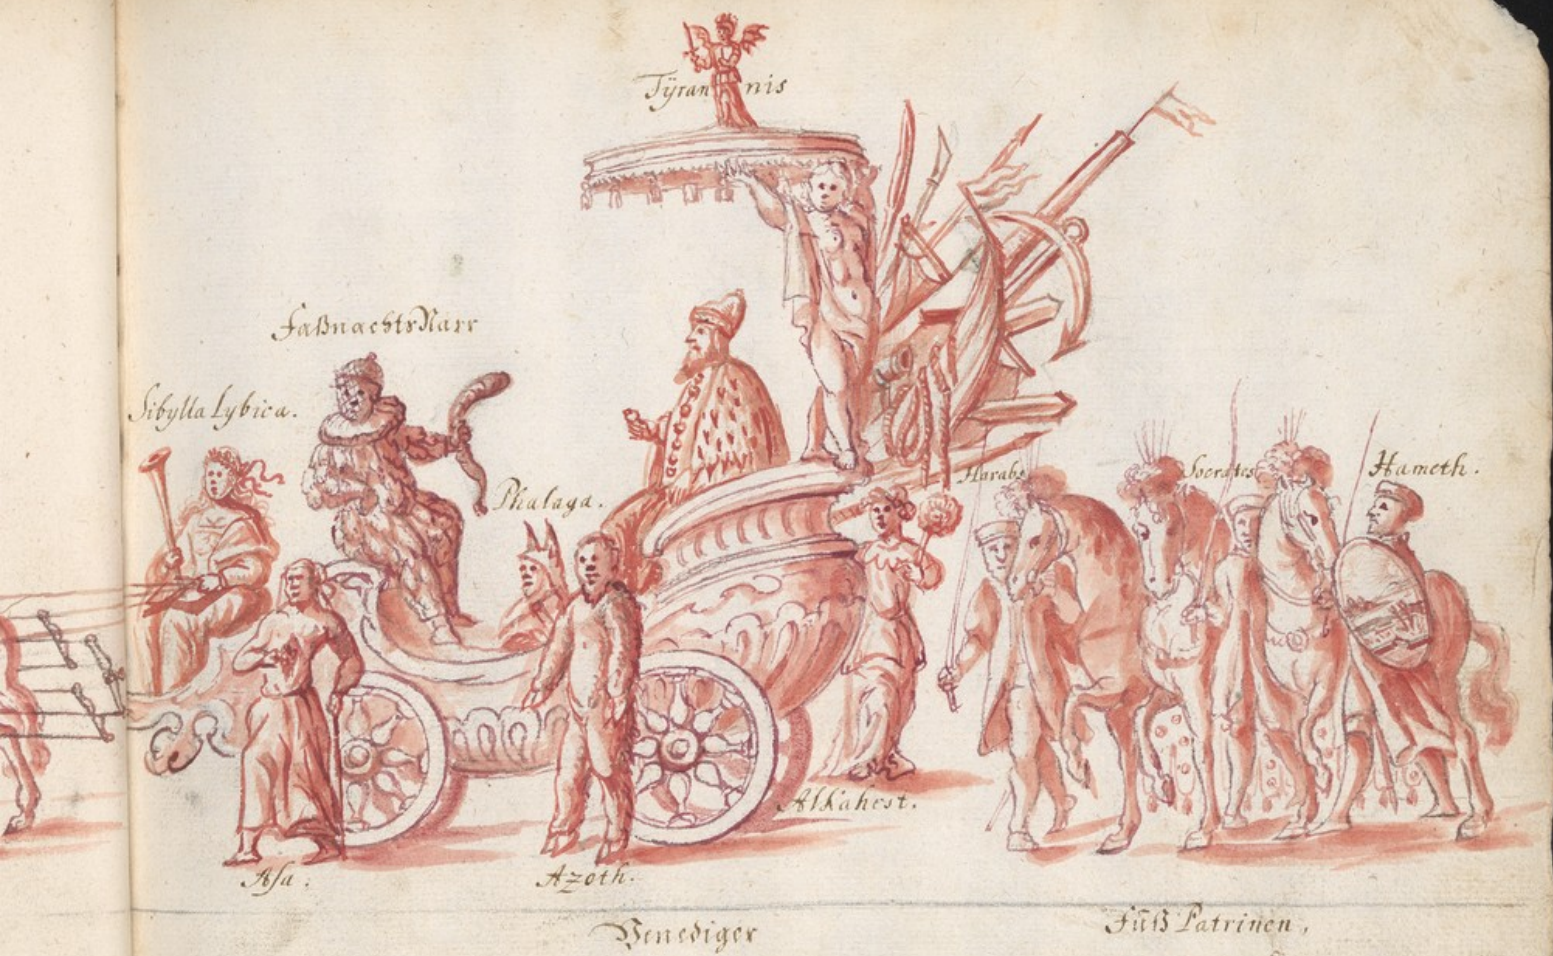 Tÿrannis
FaßnachtsNarr
Sibylla Lybica.
Phalaga.
Harabs
Socrates
Hameth.
Alkahest.
Asa.
Azoth.
Venediger
Fuß Patrinen,